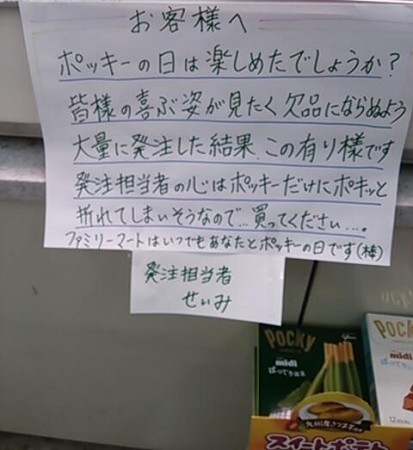 お客様へ
ポッキーの日は楽しめたでしょうか?
皆様の喜ぶ姿が見たく欠品にならぬよう
大量に発注した結果、この有り様です
発注担当者の心はポッキーだけにポキッと
折れてしまいそうなので…買ってください…。
ファミリーマートはいつでもあなたとポッキーの日です(棒)
発注担当者
せいみ
POCKY
midi
Glico
九州産さつま芋
スイートポテト
POCKY
midi